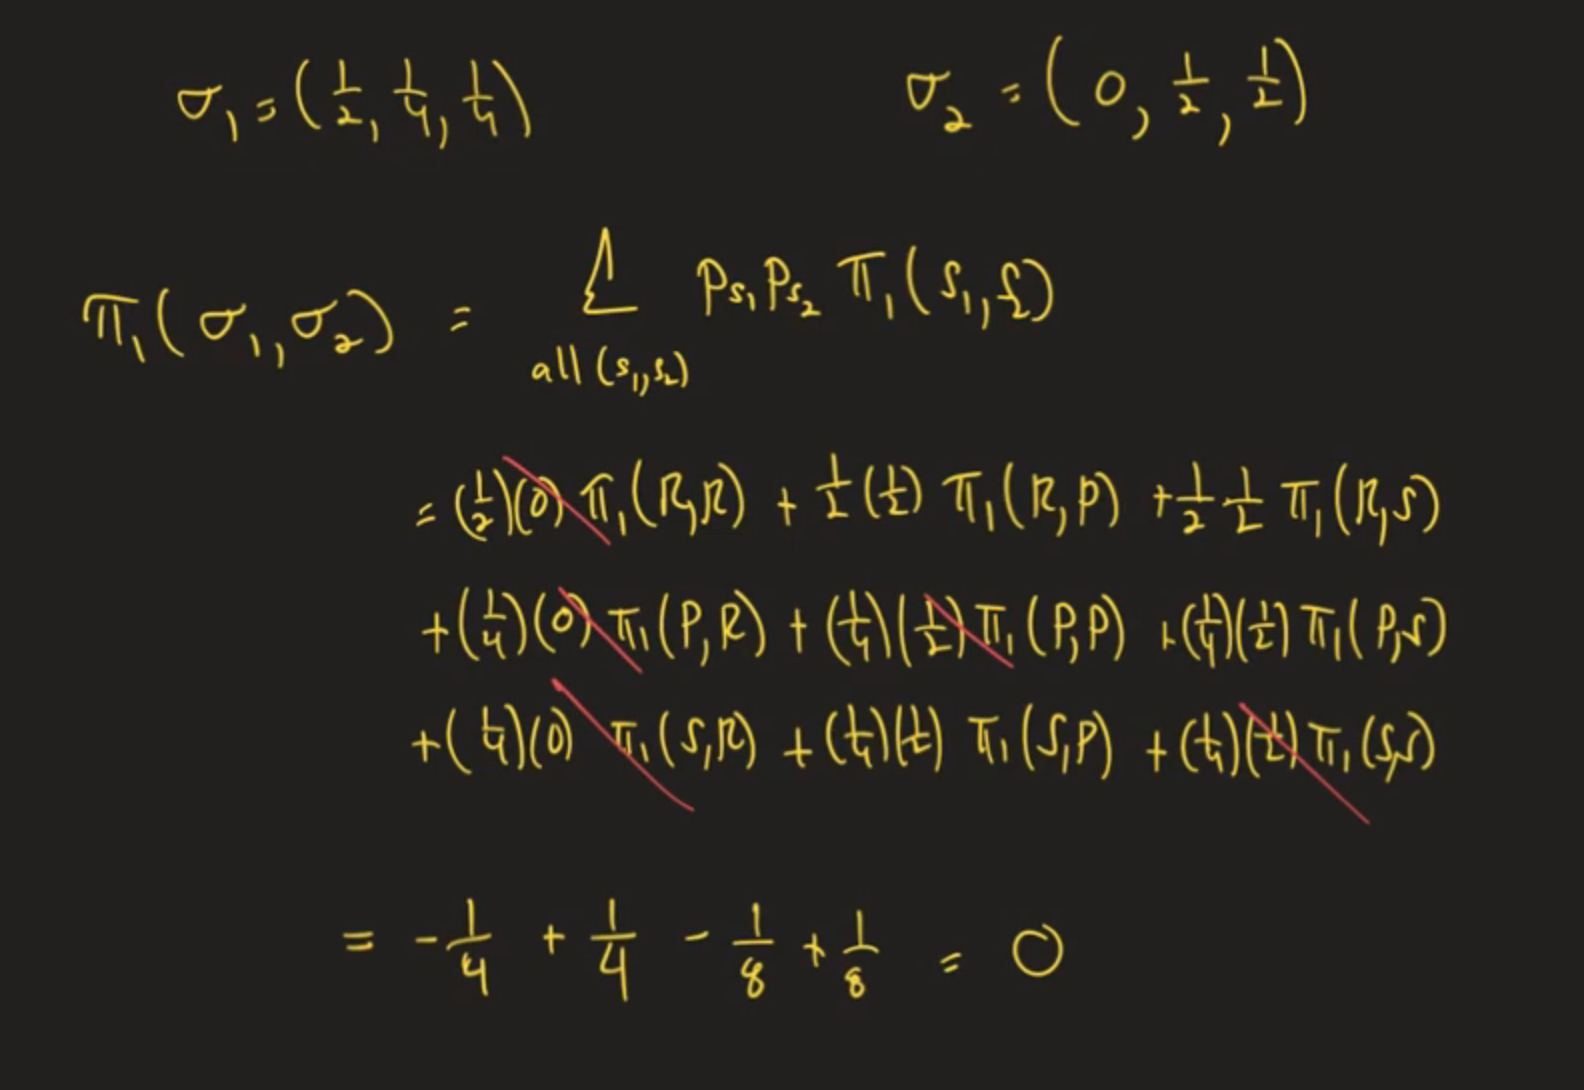 σ₁ = (1/2, 1/4, 1/4) σ₂ = (0, 1/2, 1/2)
π₁(σ₁, σ₂) = Σ p_s₁ p_s₂ π₁(s₁, s₂)
all (s₁, s₂)
= (1/2)(0) π₁(R,R) + 1/2 (1/2) π₁(R,P) + 1/2 1/2 π₁(R,S)
+ (1/4)(0) π₁(P,R) + (1/4)(1/2) π₁(P,P) + (1/4)(1/2) π₁(P,S)
+ (1/4)(0) π₁(S,R) + (1/4)(1/2) π₁(S,P) + (1/4)(1/2) π₁(S,S)
= - 1/4 + 1/4 - 1/8 + 1/8 = 0